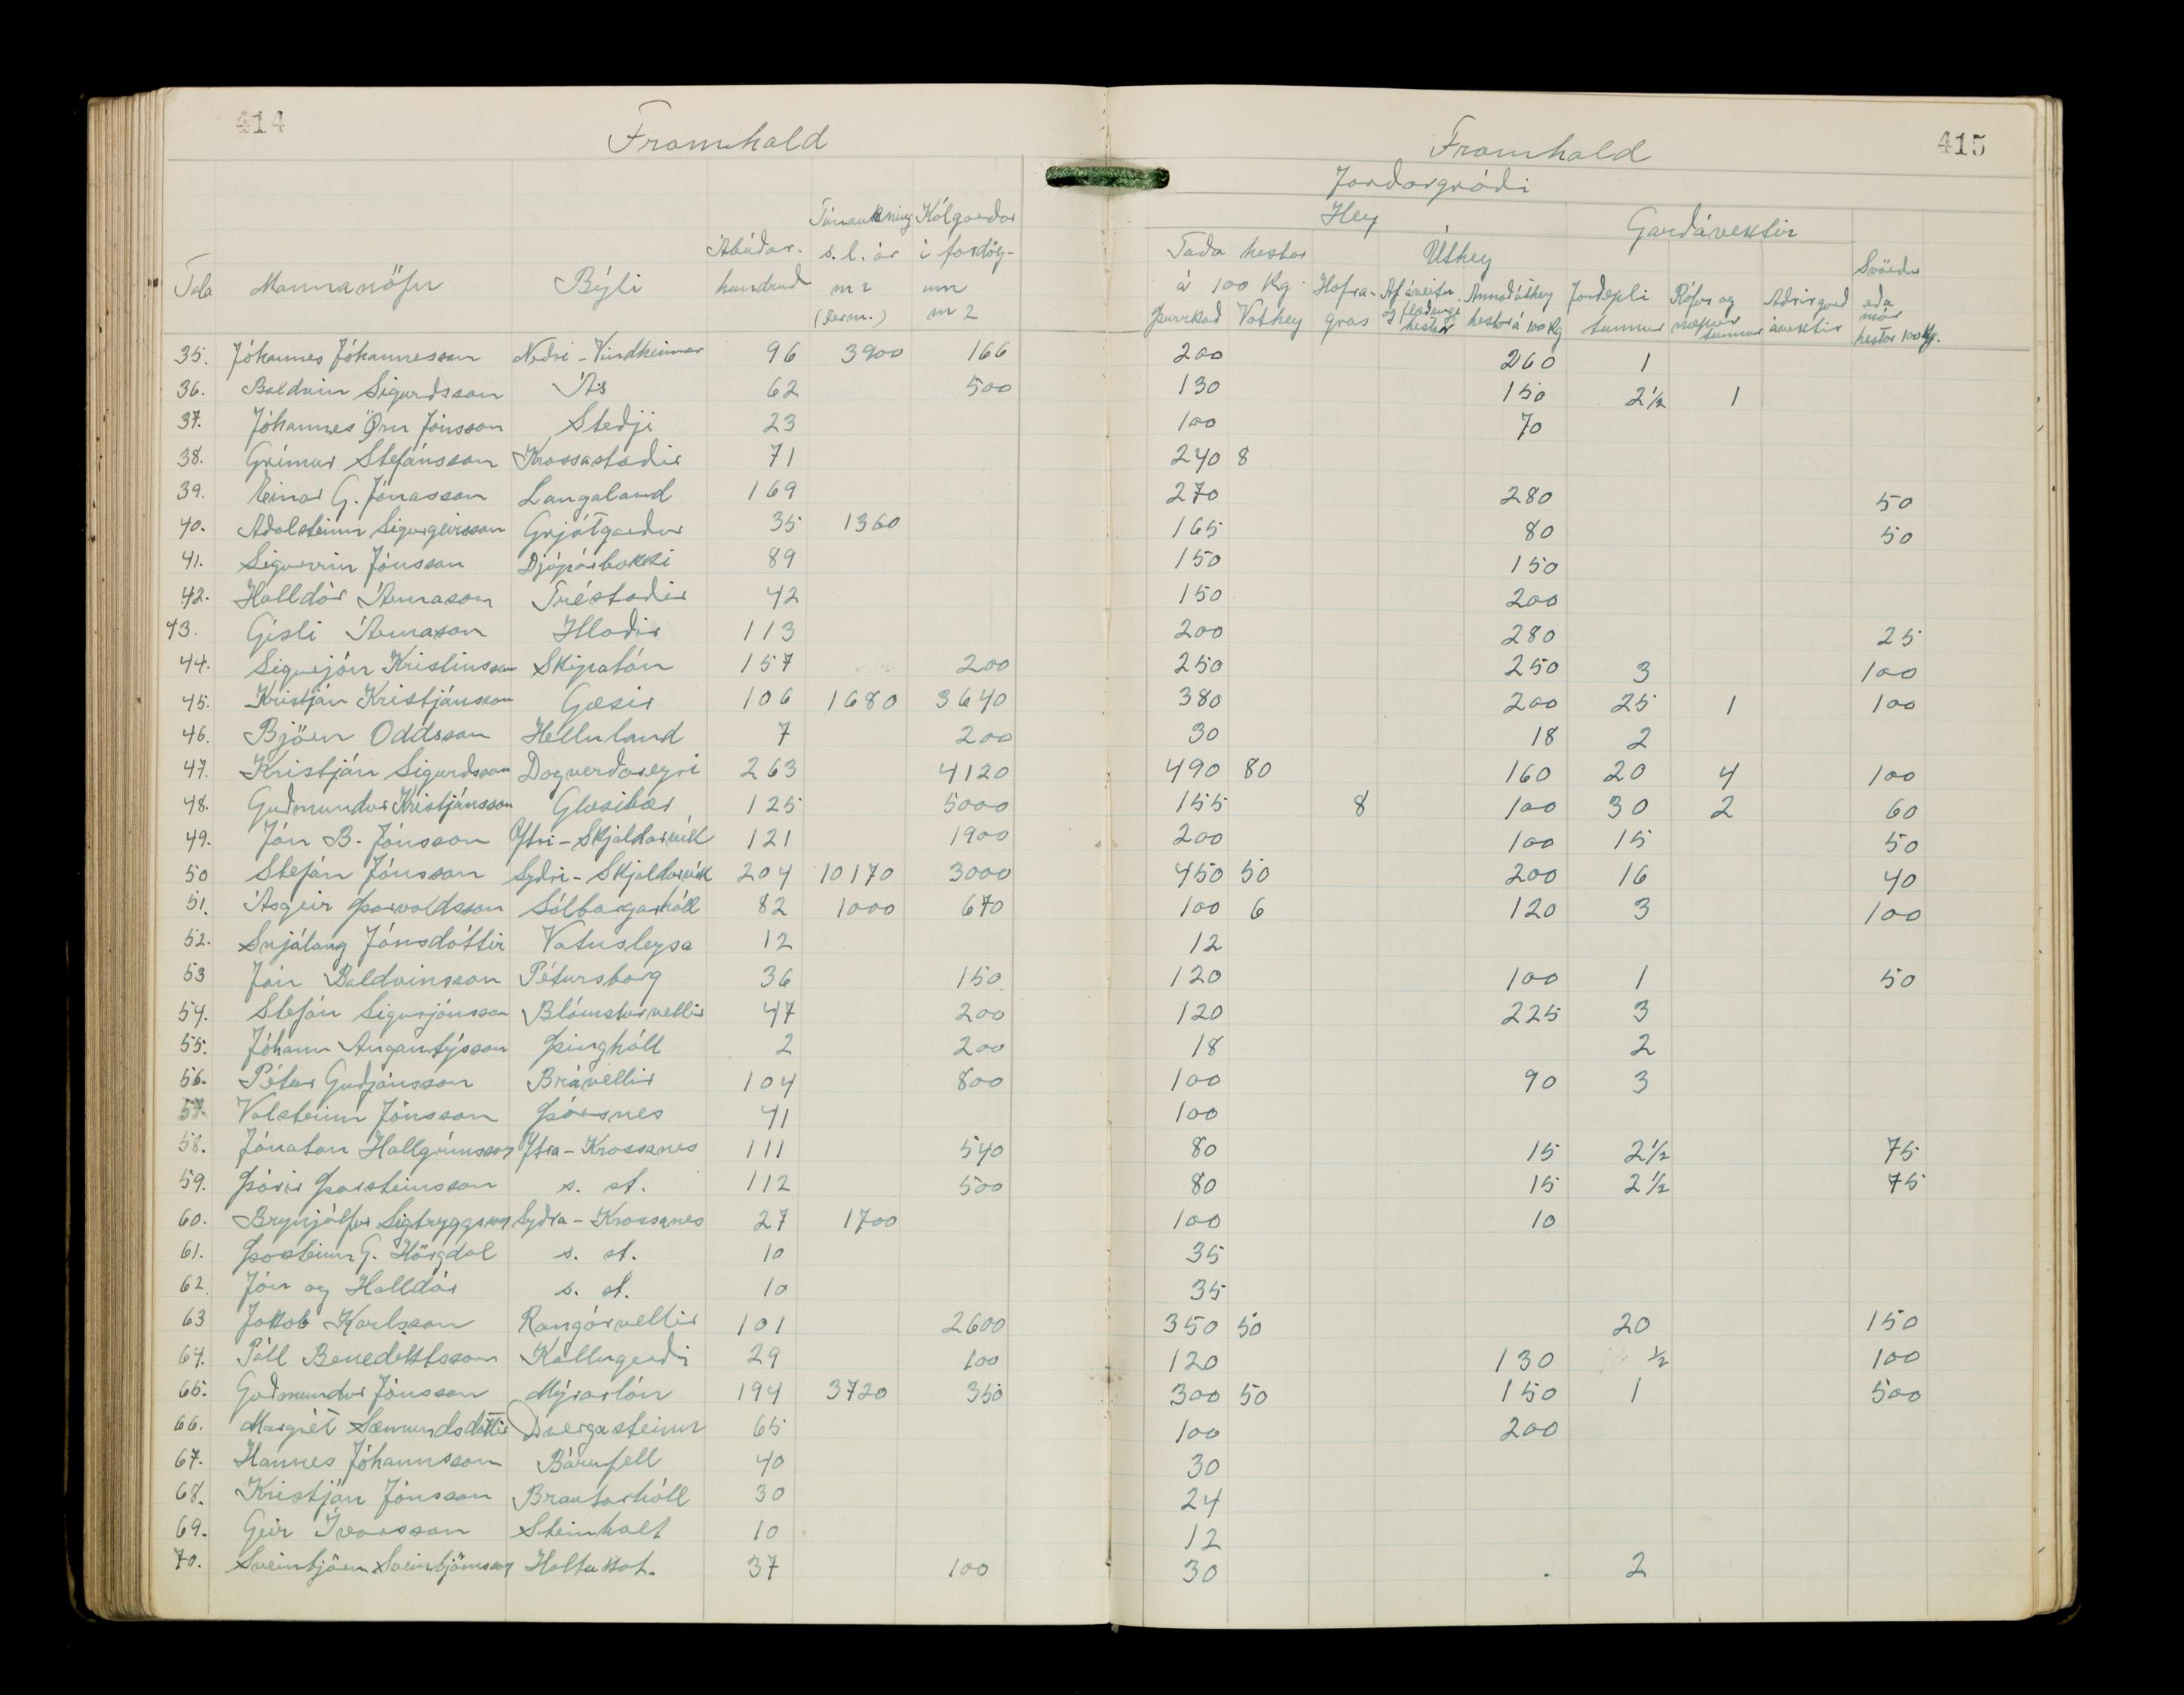 414
Framhald
Tala Mannanöfn Býli Ábúðar-hundruð Túnaukning s.l. ár m2 (ferm.) Kálgarðar í fardög-um m2
35. Jóhannes Jóhannesson Neðri-Vindheimar 96 3900 166
36. Baldvin Sigurðsson Ás 62 500
37. Jóhannes Örn Jónsson Steðji 23
38. Grímur Stefánsson Krossastaðir 71
39. Einar G. Jónasson Laugaland 169
40. Aðalsteinn Sigurgeirsson Grjótgarður 35 1360
41. Sigurvin Jónsson Djúpárbakki 89
42. Halldór Árnason Tréstaðir 42
43. Gísli Árnason Hlaðir 113
44. Sigurjón Kristinsson Skipalón 157 200
45. Kristján Kristjánsson Gæsir 106 1680 3640
46. Björn Oddsson Helluland 7 200
47. Kristján Sigurðsson Dagverðareyri 263 4120
48. Guðmundur Kristjánsson Glæsibær 125 5000
49. Jón B. Jónsson Ytri-Skjaldarvík 121 1900
50 Stefán Jónsson Syðri-Skjaldarvík 204 10170 3000
51. Ásgeir Þorvaldsson Sólborgarhóll 82 1000 670
52. Snjálaug Jónsdóttir Vatnsleysa 12
53 Jón Baldvinsson Pétursborg 36 150
54. Stefán Sigurjónsson Blómsturvellir 47 200
55. Jóhann Angantýsson Þinghóll 2 200
56. Pétur Guðjónsson Brávellir 104 800
57. Valsteinn Jónsson Þórsnes 41
58. Jónatan Hallgrímsson Ytra-Krossanes 111 540
59. Þórir Þorsteinsson s. st. 112 500
60. Brynjólfur Sigtryggsson Syðra-Krossanes 27 1700
61. Þorsteinn G. Hörgdal s. st. 10
62. Jón og Halldór s. st. 10
63 Jakob Karlsson Rangárvellir 101 2600
64. Páll Benediktsson Kollugerði 29 100
65. Guðmundur Jónsson Mýrarlón 194 3720 350
66. Margrét Sæmundsdóttir Dvergasteinn 65
67. Hannes Jóhannsson Bárufell 40
68. Kristján Jónsson Brautarhóll 30
69. Geir Ívarsson Steinholt 10
70. Sveinbjörn Sveinbjörnsson Holtakot. 37 100
415
Framhald
Jarðargróði
Hey Garðávextir
Taða hestar á 100 Kg. Úthey
þurrkað Vothey Hafra-gras Af áveitu og flæðengi hestar Annað úthey hestar á 100 Kg Jarðepli tunnur Rófur og næpur tunnur Aðrir garð ávextir Svörður eða mór hestar 100 Kg.
200 260 1
130 150 2½ 1
100 70
240 8
270 280 50
165 80 50
150 150
150 200
200 280 25
250 250 3 100
380 200 25 1 100
30 18 2
490 80 160 20 4 100
155 8 100 30 2 60
200 100 15 50
450 50 200 16 40
100 6 120 3 100
12
120 100 1 50
120 225 3
18 2
100 90 3
100
80 15 2½ 75
80 15 2½ 75
100 10
35
35
350 50 20 150
120 130 ½ 100
300 50 150 1 500
100 200
30
24
12
30 2